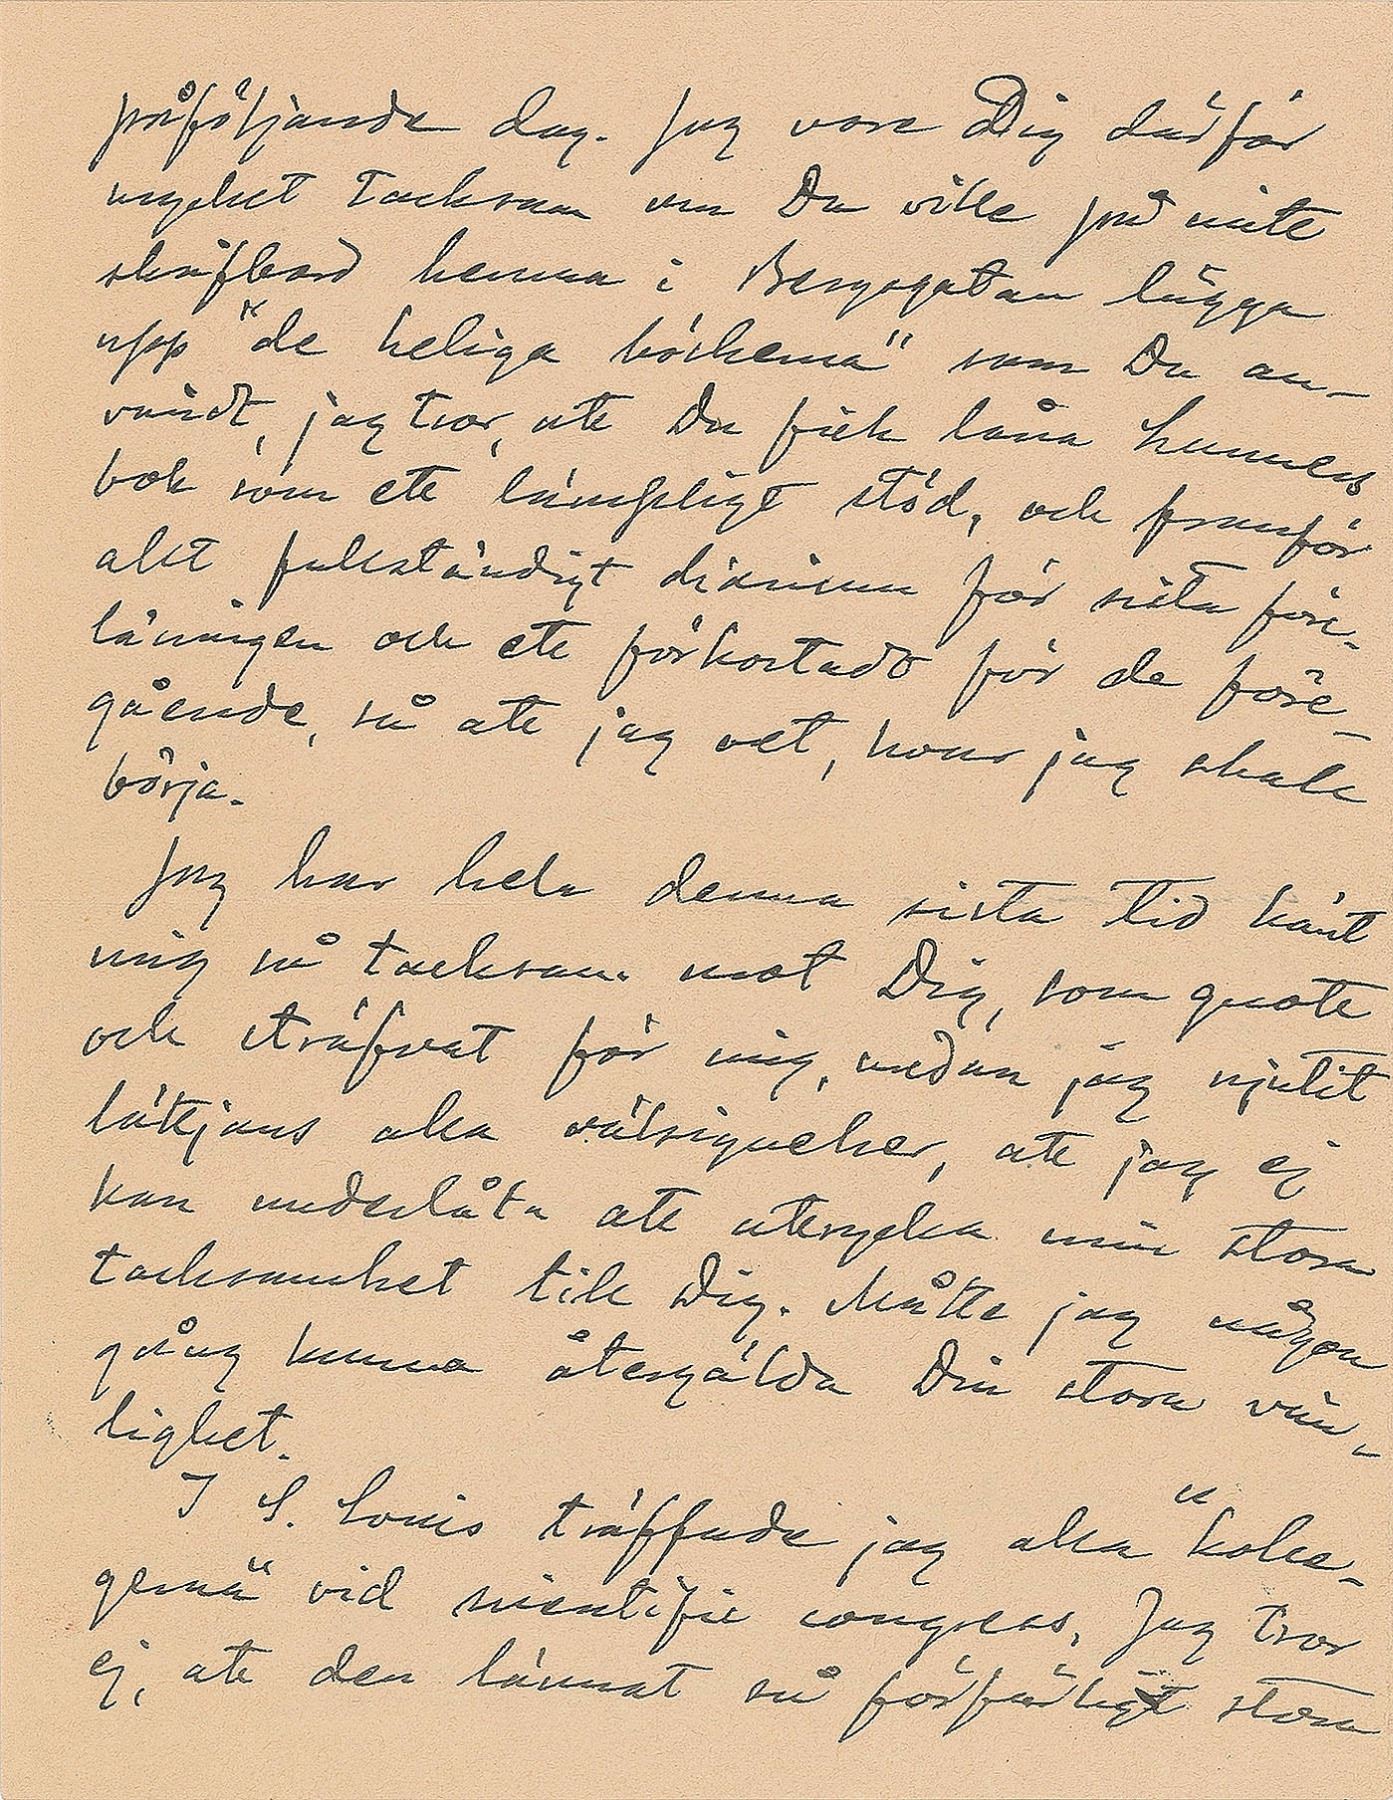 påföljande dag. Jag vore Dig därför
mycket tacksam om Du ville på mitt
skrifbord hemma i Bergsgatan lägga
upp "de heliga böckerna" som Du an-
vändt, jag tror, att Du fick låna hennes
bok som ett lämpligt stöd, och framför
allt fullständigt diarium för sista före-
läsningen och ett förkortadt för de före-
gående, så att jag vet, hvar jag skall
börja.
Jag har hela denna sista tid känt
mig så tacksam mot Dig, som gnott
och sträfvat för mig, medan jag njutit
lättjans alla välsignelser, att jag ej
kan underlåta att uttrycka min stora
tacksamhet till Dig. Måtte jag någon
gång kunna återgälda Din stora vän-
lighet.
I S. Louis träffade jag alla "kolle-
gerna" vid scientific congress. Jag tror
ej, att den lämnat så förfärligt stora